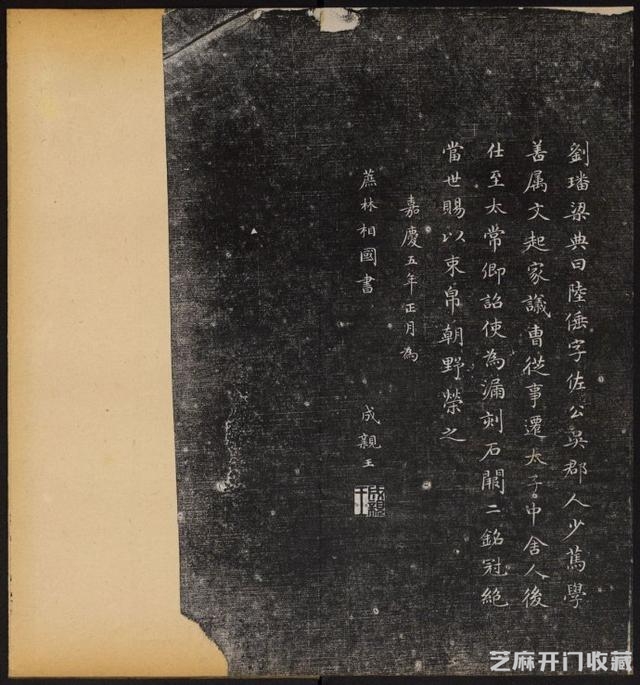 劉璠梁典曰陸倕字佐公吳郡人少篤學
善属文起家議曹從事遷太子中舍人後
仕至太常卿詔使為漏刻石闕二銘冠絶
當世賜以束帛朝野榮之
嘉慶五年正月為
蔗林相國書
成親王
成親王
芝麻开门收藏